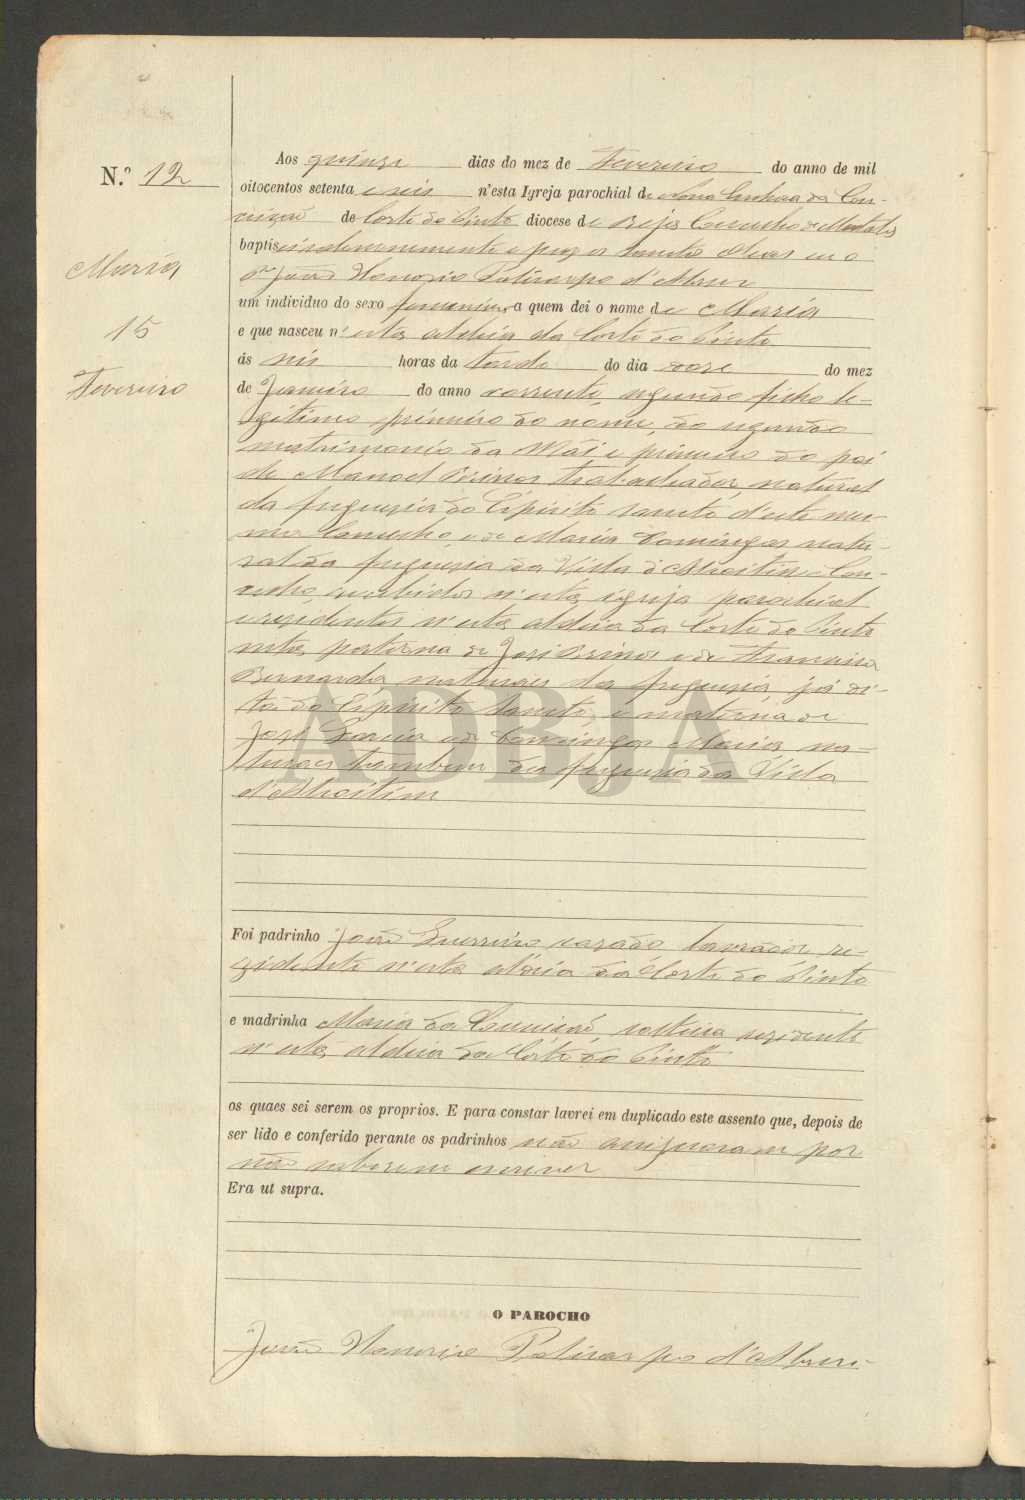 N.º 12
Maria
15
Fevereiro
Aos quinze dias do mez de Fevereiro do anno de mil
oitocentos setenta e seis n'esta Igreja parochial de Nossa Senhora da Con-
ceição de Corte do Pinto diocese de Beja Concelho de Mertola
baptisei solemnemente e puz os Santos Oleos eu o
P.e João Honorio Policarpo d'Abreu
um individuo do sexo femenino, a quem dei o nome de Maria
e que nasceu n'esta aldeia da Corte do Pinto
ás seis horas da tarde do dia doze do mez
de Janeiro do anno corrente, segundo filho le-
gitimo primeiro do nome, do segundo
matrimonio da Mãi e primeiro do pai
de Manoel trabalhador, natural
da freguesia do Espirito Santo d'este mes-
mo Concelho, e de Maria Domingas natu-
ral da freguesia da Villa d'Alcoitim Con-
celho, recebidos n'esta igreja parochial
e residentes n'esta aldeia da Corte do Pinto
neta paterna de José e de Francisca
Bernarda naturaes da freguesia já di-
ta do Espirito Santo, e materna de
José Garcia e de Domingas Maria na-
turaes tambem da freguesia da Villa
d'Alcoitim
Foi padrinho João Guerreiro casado lavrador re-
zidente n'esta aldeia da Corte do Pinto
e madrinha Maria da Conceição, solteira rezidente
n'esta aldeia da Corte do Pinto
os quaes sei serem os proprios. E para constar lavrei em duplicado este assento que, depois de
ser lido e conferido perante os padrinhos não assignaram por
não saberem escrever
Era ut supra.
O PAROCHO
João Honorio Policarpo d'Abreu
ADBJA